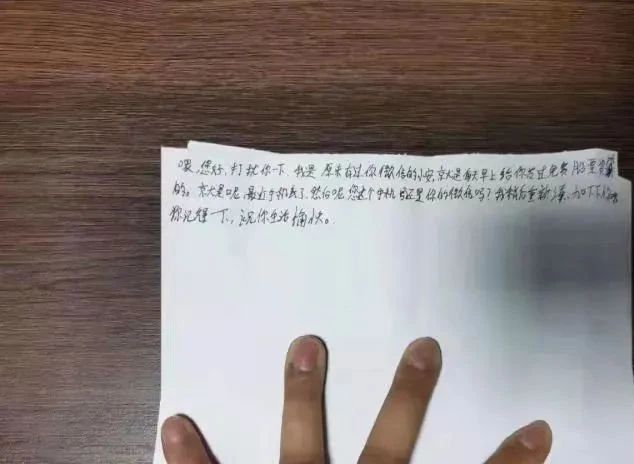 喂,您好,打扰你一下,我是原来有过你微信的小安,就是每天早上给你发过免费股票
的。就是呢,最近手机丢了,然后呢,您这个手机号还是你的微信吗?我稍后重新加下
你记得一下,祝你生活愉快。